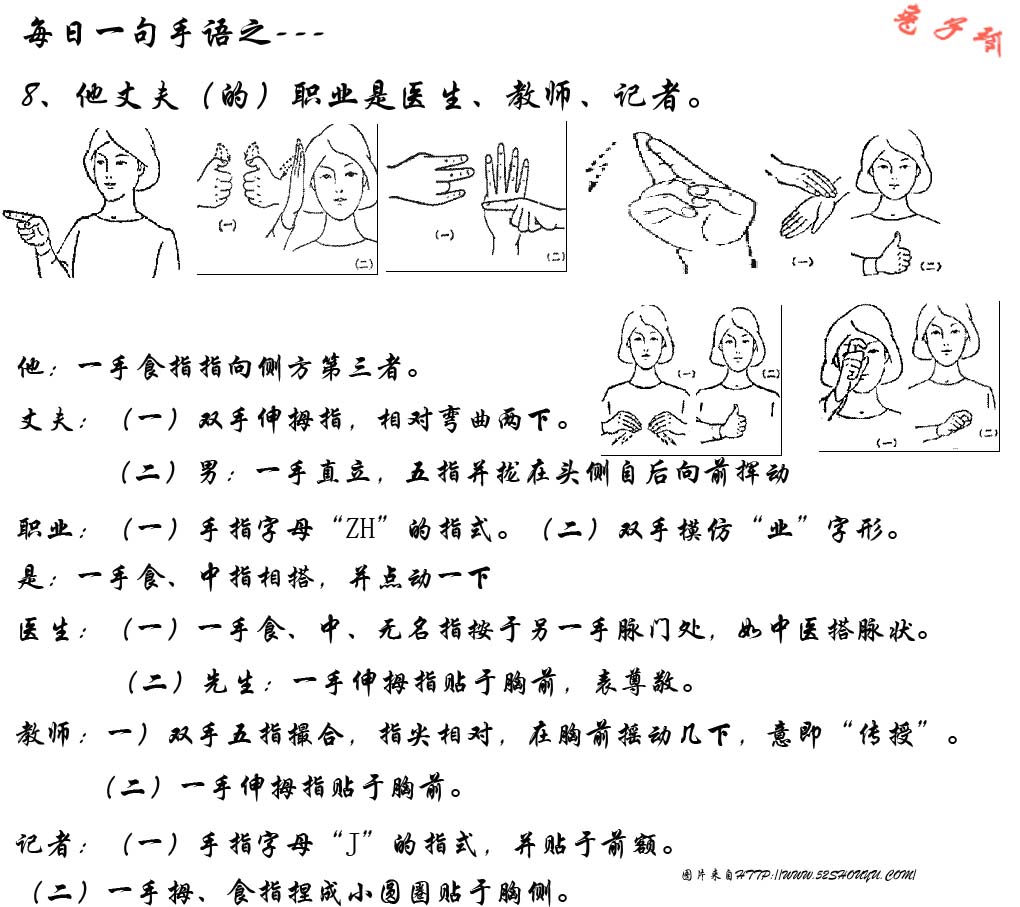 每日一句手语之---
8、他丈夫（的）职业是医生、教师、记者。
（一）
（二）
（一）
（二）
（一）
（二）
（一）
（二）
（一）
（二）
他：一手食指指向侧方第三者。
丈夫：（一）双手伸拇指，相对弯曲两下。
（二）男：一手直立，五指并拢在头侧自后向前挥动
职业：（一）手指字母“ZH”的指式。（二）双手模仿“业”字形。
是：一手食、中指相搭，并点动一下
医生：（一）一手食、中、无名指按于另一手脉门处，如中医搭脉状。
（二）先生：一手伸拇指贴于胸前，表尊敬。
教师：一）双手五指撮合，指尖相对，在胸前摇动几下，意即“传授”。
（二）一手伸拇指贴于胸前。
记者：（一）手指字母“J”的指式，并贴于前额。
（二）一手拇、食指捏成小圆圈贴于胸侧。
图片来自HTTP://WWW.52SHOUYU.COM/